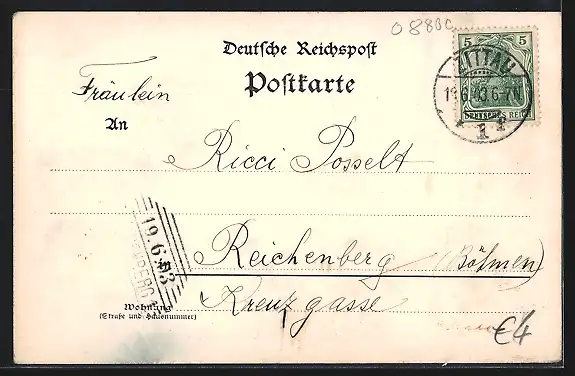 088BC
Deutsche Reichspost
Postkarte
5 5
ZITTAU
19.6.03.6-7N.
1
DEUTSCHES REICH
Fräulein
An
Ricci Posselt
19.6.03
in
Reichenberg (Böhmen)
Wohnung
(Straße und Hausnummer)
Kreuzgasse
€4